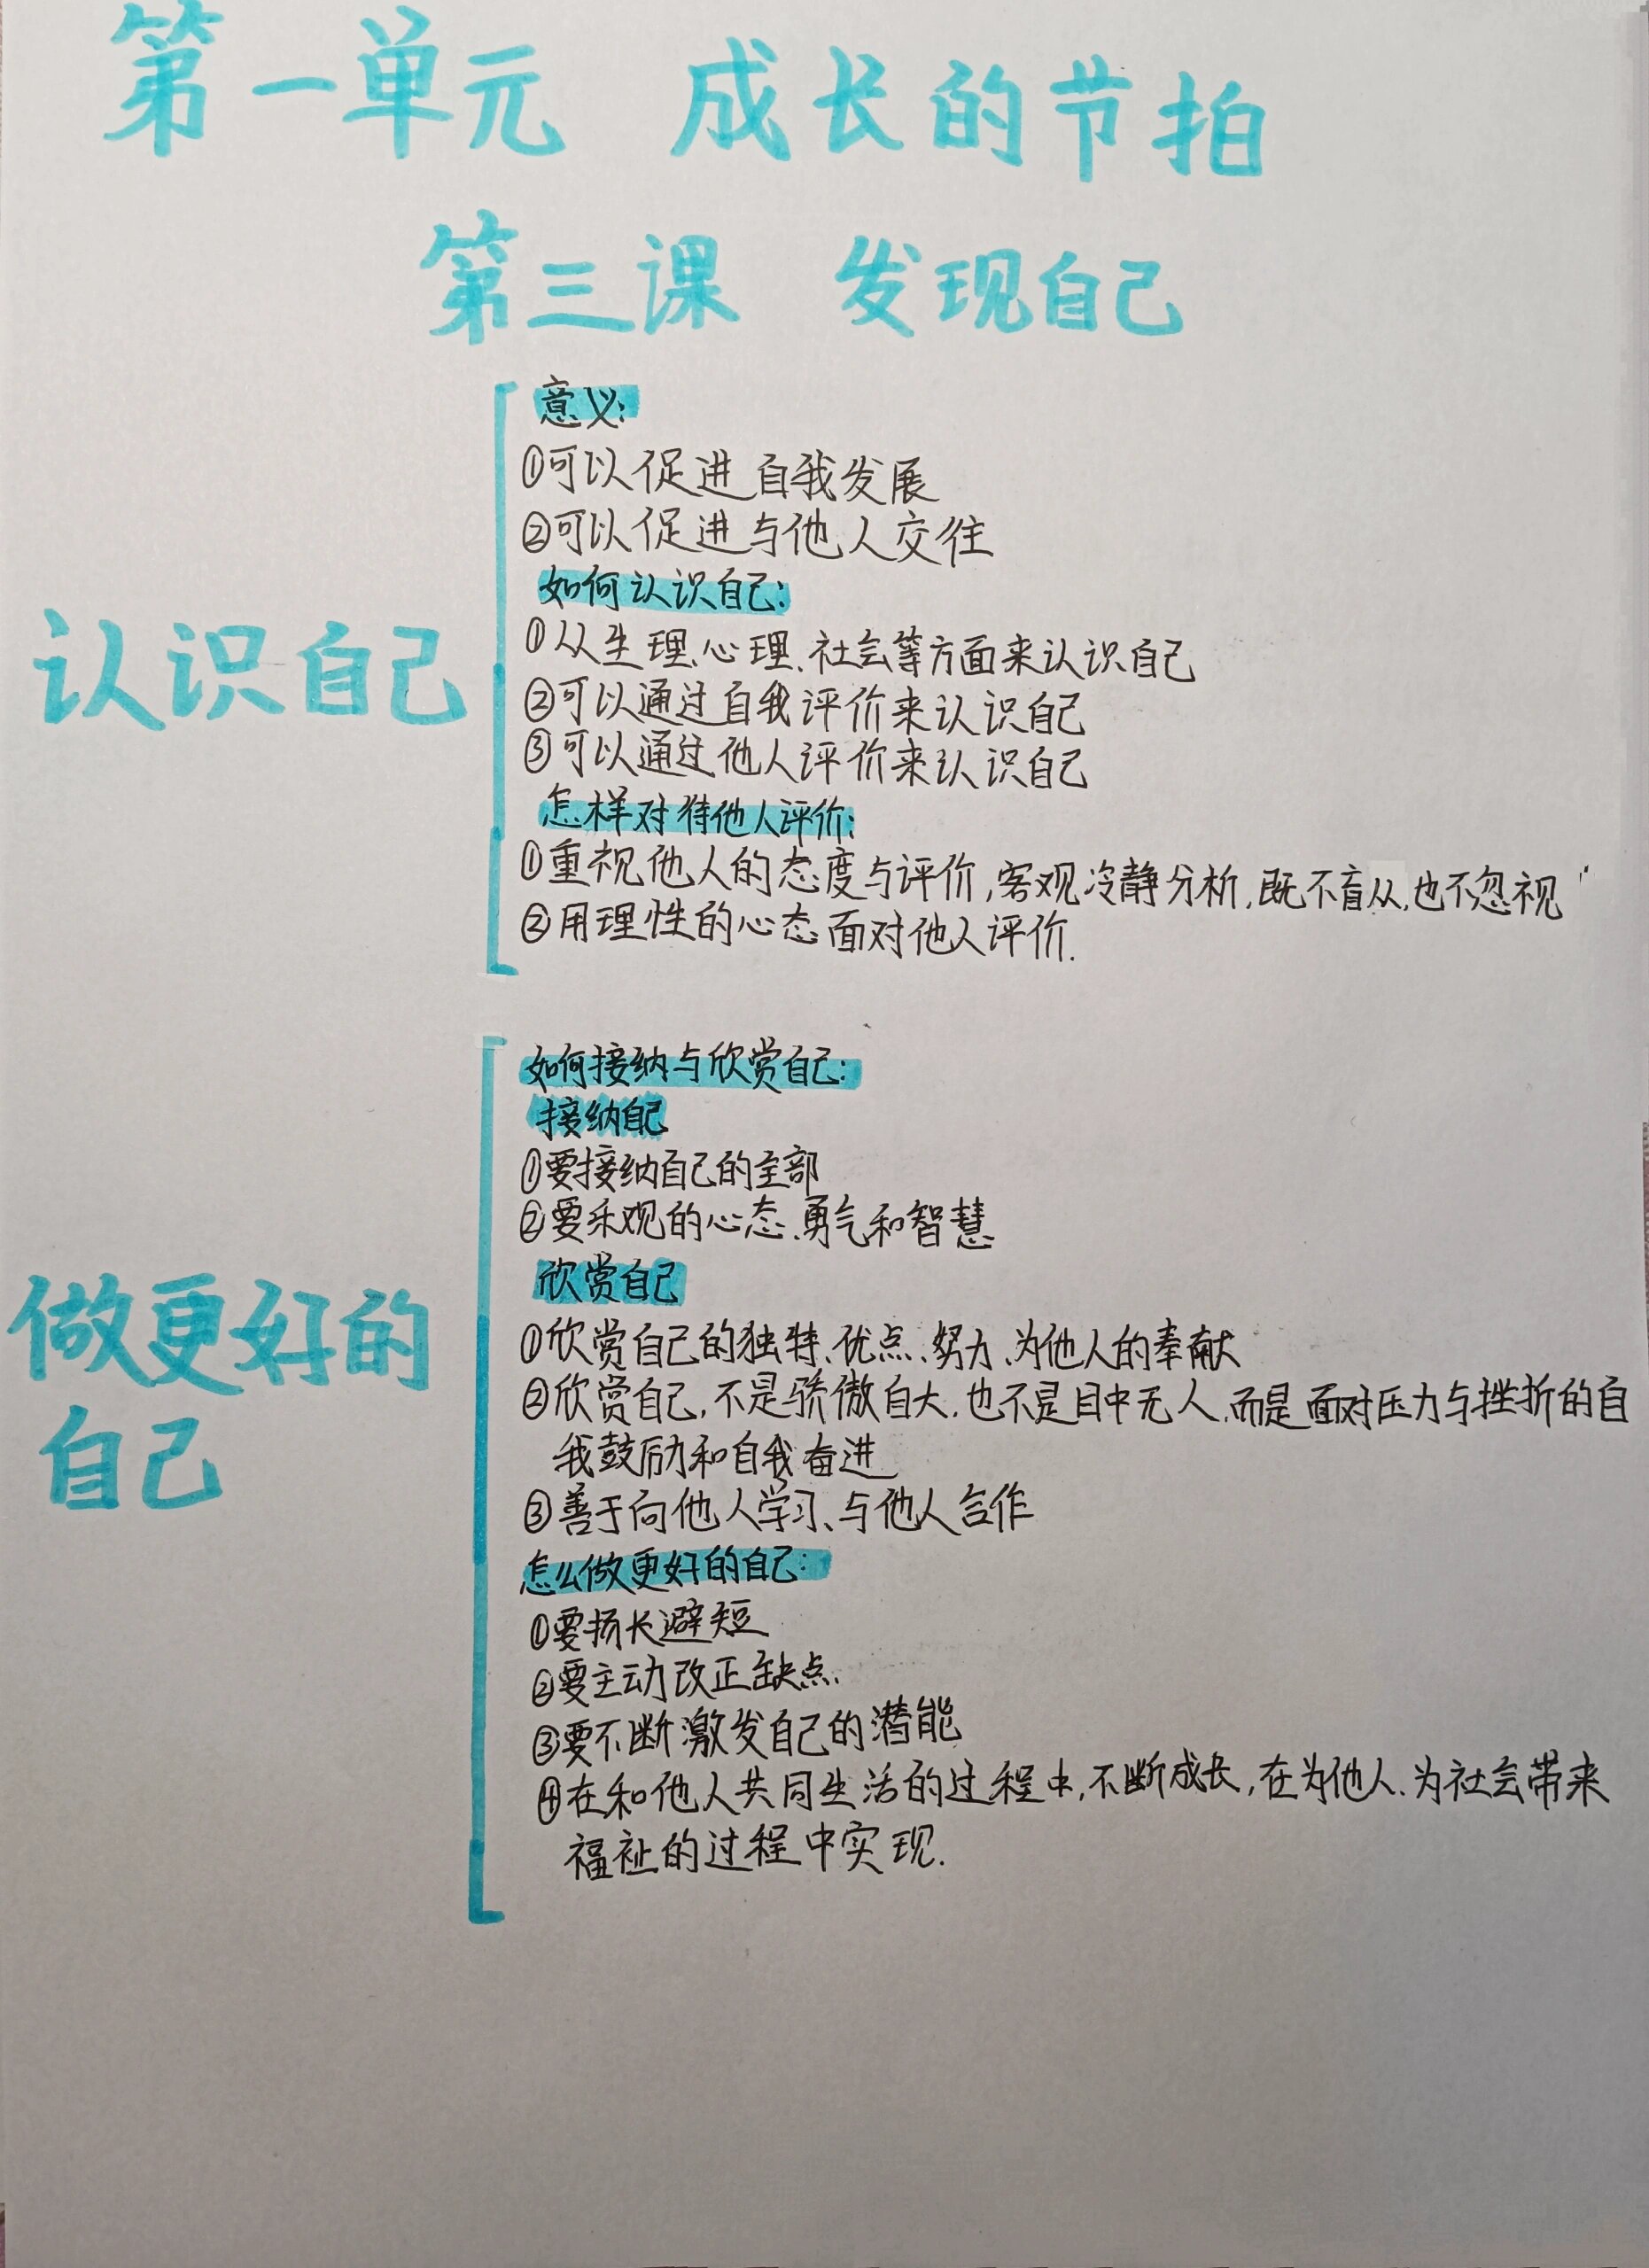 第一单元 成长的节拍
第三课 发现自己
认识自己
意义:
①可以促进自我发展
②可以促进与他人交往
如何认识自己:
①从生理、心理、社会等方面来认识自己
②可以通过自我评价来认识自己
③可以通过他人评价来认识自己
怎样对待他人评价:
①重视他人的态度与评价,客观冷静分析,既不盲从,也不忽视
②用理性的心态面对他人评价.
做更好的
自己
如何接纳与欣赏自己:
接纳自己
①要接纳自己的全部
②要乐观的心态、勇气和智慧
欣赏自己
①欣赏自己的独特、优点、努力、为他人的奉献
②欣赏自己,不是骄傲自大,也不是目中无人,而是面对压力与挫折的自
我鼓励和自我奋进
③善于向他人学习、与他人合作
怎么做更好的自己:
①要扬长避短
②要主动改正缺点.
③要不断激发自己的潜能
④在和他人共同生活的过程中,不断成长,在为他人、为社会带来
福祉的过程中实现.